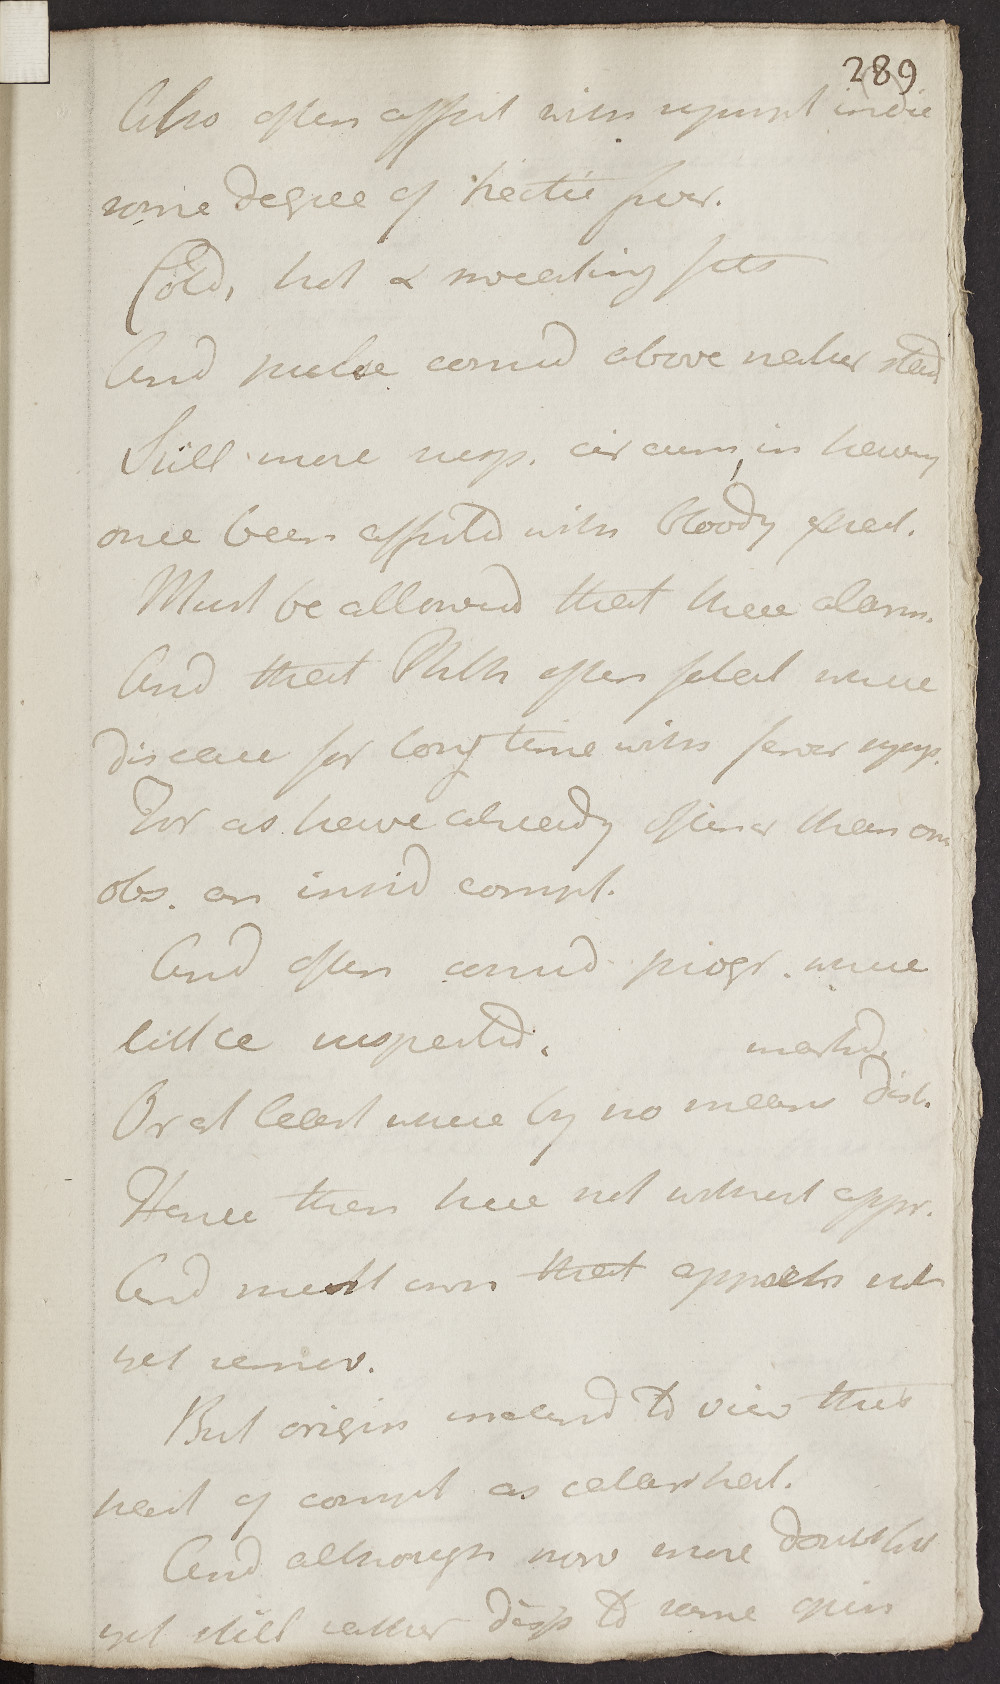 289
Also often affect with sympt indic
some degree of hectic fever.
Cold, hot & sweating fits
And pulse consid above natur stand
Still more susp. circum, in having
once been affected with bloody expect.
Must be allowed that these alarm.
And that Phth often fatal where
disease for long time with fewer symp.
For as have already oftener than once
obs. an insid compt.
And often consid progr. where
little suspected.
marked.
Or at least where by no means dist.
Hence then here not without appr.
And must own that appreh not
yet remov.
But origin inclined to view this
 of compt as catarrhal.
And although now more doubtful
yet still rather disp to same opin